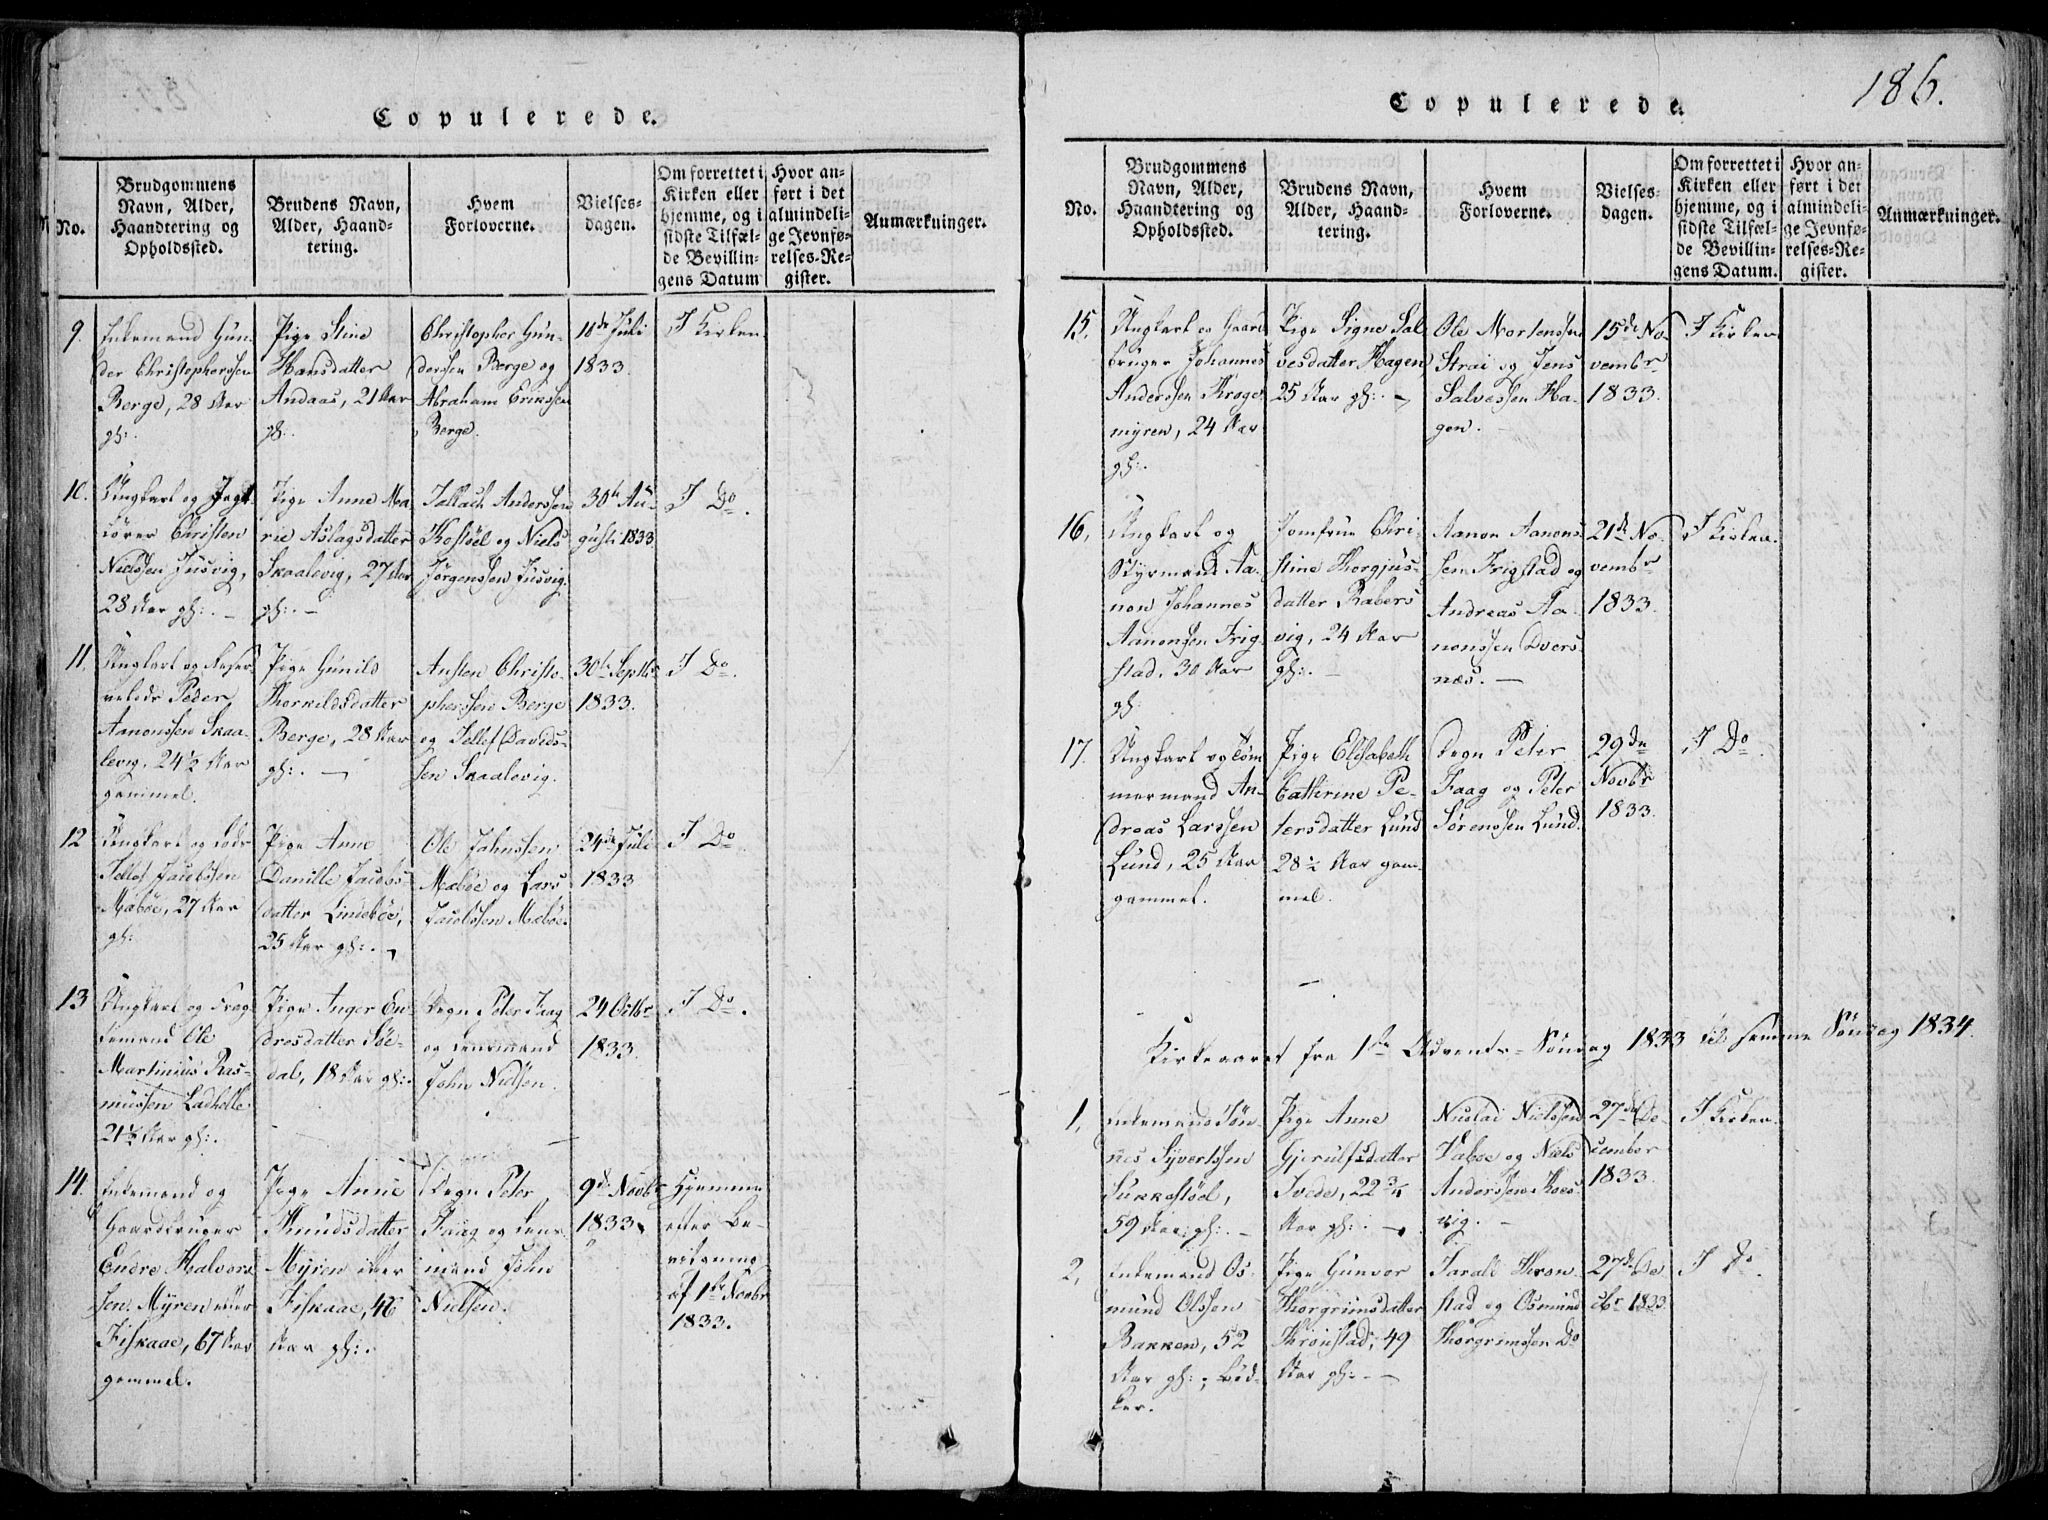 Copulerede.
No.
Brudgommens
Navn, Alder,
Haandtering og
Opholdssted.
Brudens Navn,
Alder, Haand-
tering.
Hvem
Forloverne.
Vielses-
dagen.
Om forrettet i
Kirken eller
hjemme, og i
sidste Tilfæl-
de Bevillin-
gens Datum
Hvor an-
ført i det
almindeli-
ge Jevnfø-
relses-Re-
gister.
Anmærkninger.
9.
Enkemand Gun-
der Christophersen
Berge, 28 Aar
gl:
Pige Stine
Hansdatter
Andaas, 21 Aar
gl:
Christopher Gun-
dersen Berge og
Abraham Eriksen
Berge.
1833
I Kirken
10.
Ungkarl og
Christen
Nielssen Justvig,
28 Aar gl: -
Pige Anne Ma
rie Aslagsdatter
Skaalevig, 27 Aar
gl: -
Tallach Anderssen
Kostøel og Niels
Jørgenssen Justvig.
30te Au-
gusti 1833
I Do.
11.
Ungkarl og
Peder
Aanonssen Skaa-
levig, 24½ Aar
gammel.
Pige Gunild
Thorkildsdatter
Berge, 28 Aar
gl: -
Austen Christo-
pherssen Berge
og Tellef Davids-
sen Skaalevig.
30te Septbr
1833.
I Do.
12
Ungkarl og Lods
Tellef Jacobssen
Mæbøe, 27 Aar
gl:
Pige Anne
Danille Jacobs
datter Lindebøe,
25 Aar gl: -
Ole Jahnssen
Mæbøe og Lars
Jacobssen Mæbøe
24de Juli
1833
I Do.
13
Ungkarl og
Ole
Martinius Ras-
mussen Ladhelle
21½ Aar gl:
Pige Anger En
dresdatter Søe-
dal, 18 Aar gl:.
Degn Peter Faag
og Lensmand
John Nielsen.
24 Octbr
1833.
I Do.
14.
Enkemand og
Gaardbruger
Endre Halvors
sen Myren eller
Fiskaae, 67 Aar
gammel.
Pige Anne
Knudsdatter
Myren eller
Fiskaae, 46
Aar gl:.
Degn Peter
Faag og Lens
mand John
Nielsen.
9de Novbr
1833.
Hjemme
efter Be-
vilgning
af 1ste Novbr
1833.
186.
Copulerede.
No.
Brudgommens
Navn, Alder,
Haandtering og
Opholdssted.
Brudens Navn,
Alder, Haand-
tering.
Hvem
Forloverne.
Vielses-
dagen.
Om forrettet i
Kirken eller
hjemme, og i
sidste Tilfæl-
de Bevillin-
gens Datum.
Hvor an-
ført i det
almindeli-
ge Jevnfø-
relses-Re-
gister.
Anmærkninger.
15.
Ungkarl og Gaard
bruger Johannes
Anderssen Kroge
myren, 24 Aar
gl:.
Pige Signe Sal
vesdatter Hagen
25 Aar gl:. -
Ole Mortenssen
Strai og Jens
Salvessen Ha-
gen. -
15de No
vembr
1833.
I Kirken
16.
Ungkarl og
Styrmand Aa-
non Johannes
Aanonsen Frig-
stad, 30 Aar
gl:
Jomfrue Chri-
stine Thorgjus-
datter Rabers
vig, 24 Aar
gl:. -
Aanon Aanons-
sen Frigstad og
Andreas Aa-
nonssen Dvers-
næs. -
21de No-
vembr
1833.
I Kirken.
17.
Ungkarl og Tøm
mermand An-
dreas Larssen
Lund, 25 Aar
gammel.
Pige Elisabeth
Cathrine Pe-
tersdatter Lund
28½ Aar gam-
mel.
Degn Peter
Faag og Peter
Sørenssen Lund.
29de
Novbr
1833.
I Do.
Kirkeaaret fra 1ste Advents-Søndag 1833 til samme Søndag 1834.
1,
Enkemand Tøn
nes Syvertssen
Sukkestøel,
59 Aar gl: -
Pige Anne
Gjerulfsdatter
Tvede, 22¾
Aar gl:. -
Nielssen
Vabøe og Niels
Anderssen Koes-
vig. -
27de De
cember
1833.
I Kirken.
2,
Enkemand Os-
mund Olssen
Bakken, 52
Aar gl:, Bød-
ker.
Pige Gunvor
Thorgrimsdatter
Thronstad, 49
Aar gl: -
Tarald Thron
stad og Osmund
Thorgrimssen Do
27de De
cbr 1833.
I Do.